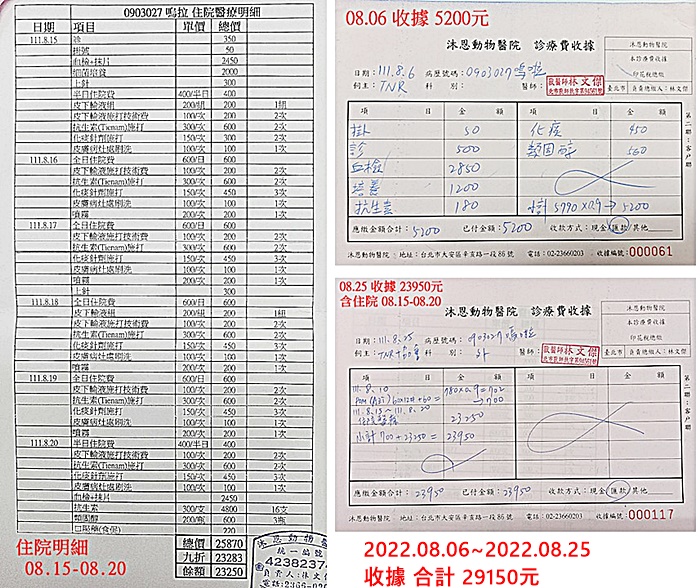 0903027 嗚拉 住院醫療明細
日期 項目 單價 總價
111.8.15 診 350
掛號 50
血檢+抹片 2450
細菌培養 2000
上針 300
半日住院費 400/半日 400
皮下輸液組 200/組 200 1組
皮下輸液施打技術費 100/次 200 2次
抗生素(Tienam)施打 300/次 600 2次
化痰針劑施打 150/次 300 2次
皮膚病灶處刷洗 100/次 100 1次
111.8.16 全日住院費 600/日 600
皮下輸液施打技術費 100/次 200 2次
抗生素(Tienam)施打 300/次 600 2次
化痰針劑施打 150/次 450 3次
皮膚病灶處刷洗 100/次 100 1次
噴霧 200/次 200 1次
111.8.17 全日住院費 600/日 600
皮下輸液施打技術費 100/次 200 2次
抗生素(Tienam)施打 300/次 600 2次
化痰針劑施打 150/次 450 3次
皮膚病灶處刷洗 100/次 100 1次
噴霧 200/次 200 1次
上針 300
111.8.18 全日住院費 600/日 600
皮下輸液組 200/組 200 1組
皮下輸液施打技術費 100/次 200 2次
抗生素(Tienam)施打 300/次 600 2次
化痰針劑施打 150/次 450 3次
皮膚病灶處刷洗 100/次 100 1次
噴霧 200/次 200 1次
111.8.19 全日住院費 600/日 600
皮下輸液施打技術費 100/次 200 2次
抗生素(Tienam)施打 300/次 600 2次
化痰針劑施打 150/次 450 3次
皮膚病灶處刷洗 100/次 100 1次
噴霧 200/次 200 1次
111.8.20 半日住院費 400/半日 400
皮下輸液施打技術費 100/次 200 2次
抗生素(Tienam)施打 300/次 600 2次
化痰針劑施打 150/次 450 3次
皮膚病灶處刷洗 100/次 100 1次
血檢+抹片 2450
抗生素 300/支 4800 16支
類固醇 200/瓶 600 3瓶
220
總價 25870
九折 23283
金額 23250
住院明細
08.15-08.20
沐恩動物醫
統一編號
4238237
負責人:林文
電話:2366-020
08.06 收據 5200元
沐恩動物醫院 診療費收據
日期:111.8.6 病歷號碼:0903027嗚啦
飼主:TNR 科別: 醫師: 獸醫師林文傑
沐恩動物醫院
本診療費收據
印花稅總繳
臺北市 負責總繳人:林文傑
項目 金額 項目 金額
掛 50 化痰 450
診 500 類固醇 560
血檢 2850
培養 1200
抗生素 180 小計 5790×0.9→5200
應繳金額合計:5200 已付金額:5200 收款方式:現金/匯款/其他
沐恩動物醫院 地址:台北市大安區辛亥路一段86號 電話:02-23660203 收據編號:000061
第二聯:客戶聯
08.25 收據 23950元
含住院 08.15-08.20
沐恩動物醫院 診療費收據
日期:111.8.25 病歷號碼:0903027嗚啦
科別: 醫師: 獸醫師林文傑
沐恩動物醫院
本診療費收據
印花稅總繳
臺北市 負責總繳人:林文傑
項目 金額 項目 金額
111.8.10 780×0.9=702
→700
111.8.15~111.8.20
23250
小計 700+23250= 23950
應繳金額合計:23950 已付金額:23950 收款方式:現金/匯款/其他
沐恩動物醫院 地址:台北市大安區辛亥路一段86號 電話:02-23660203 收據編號:000117
第二聯:客戶聯
2022.08.06~2022.08.25
收據 合計 29150元